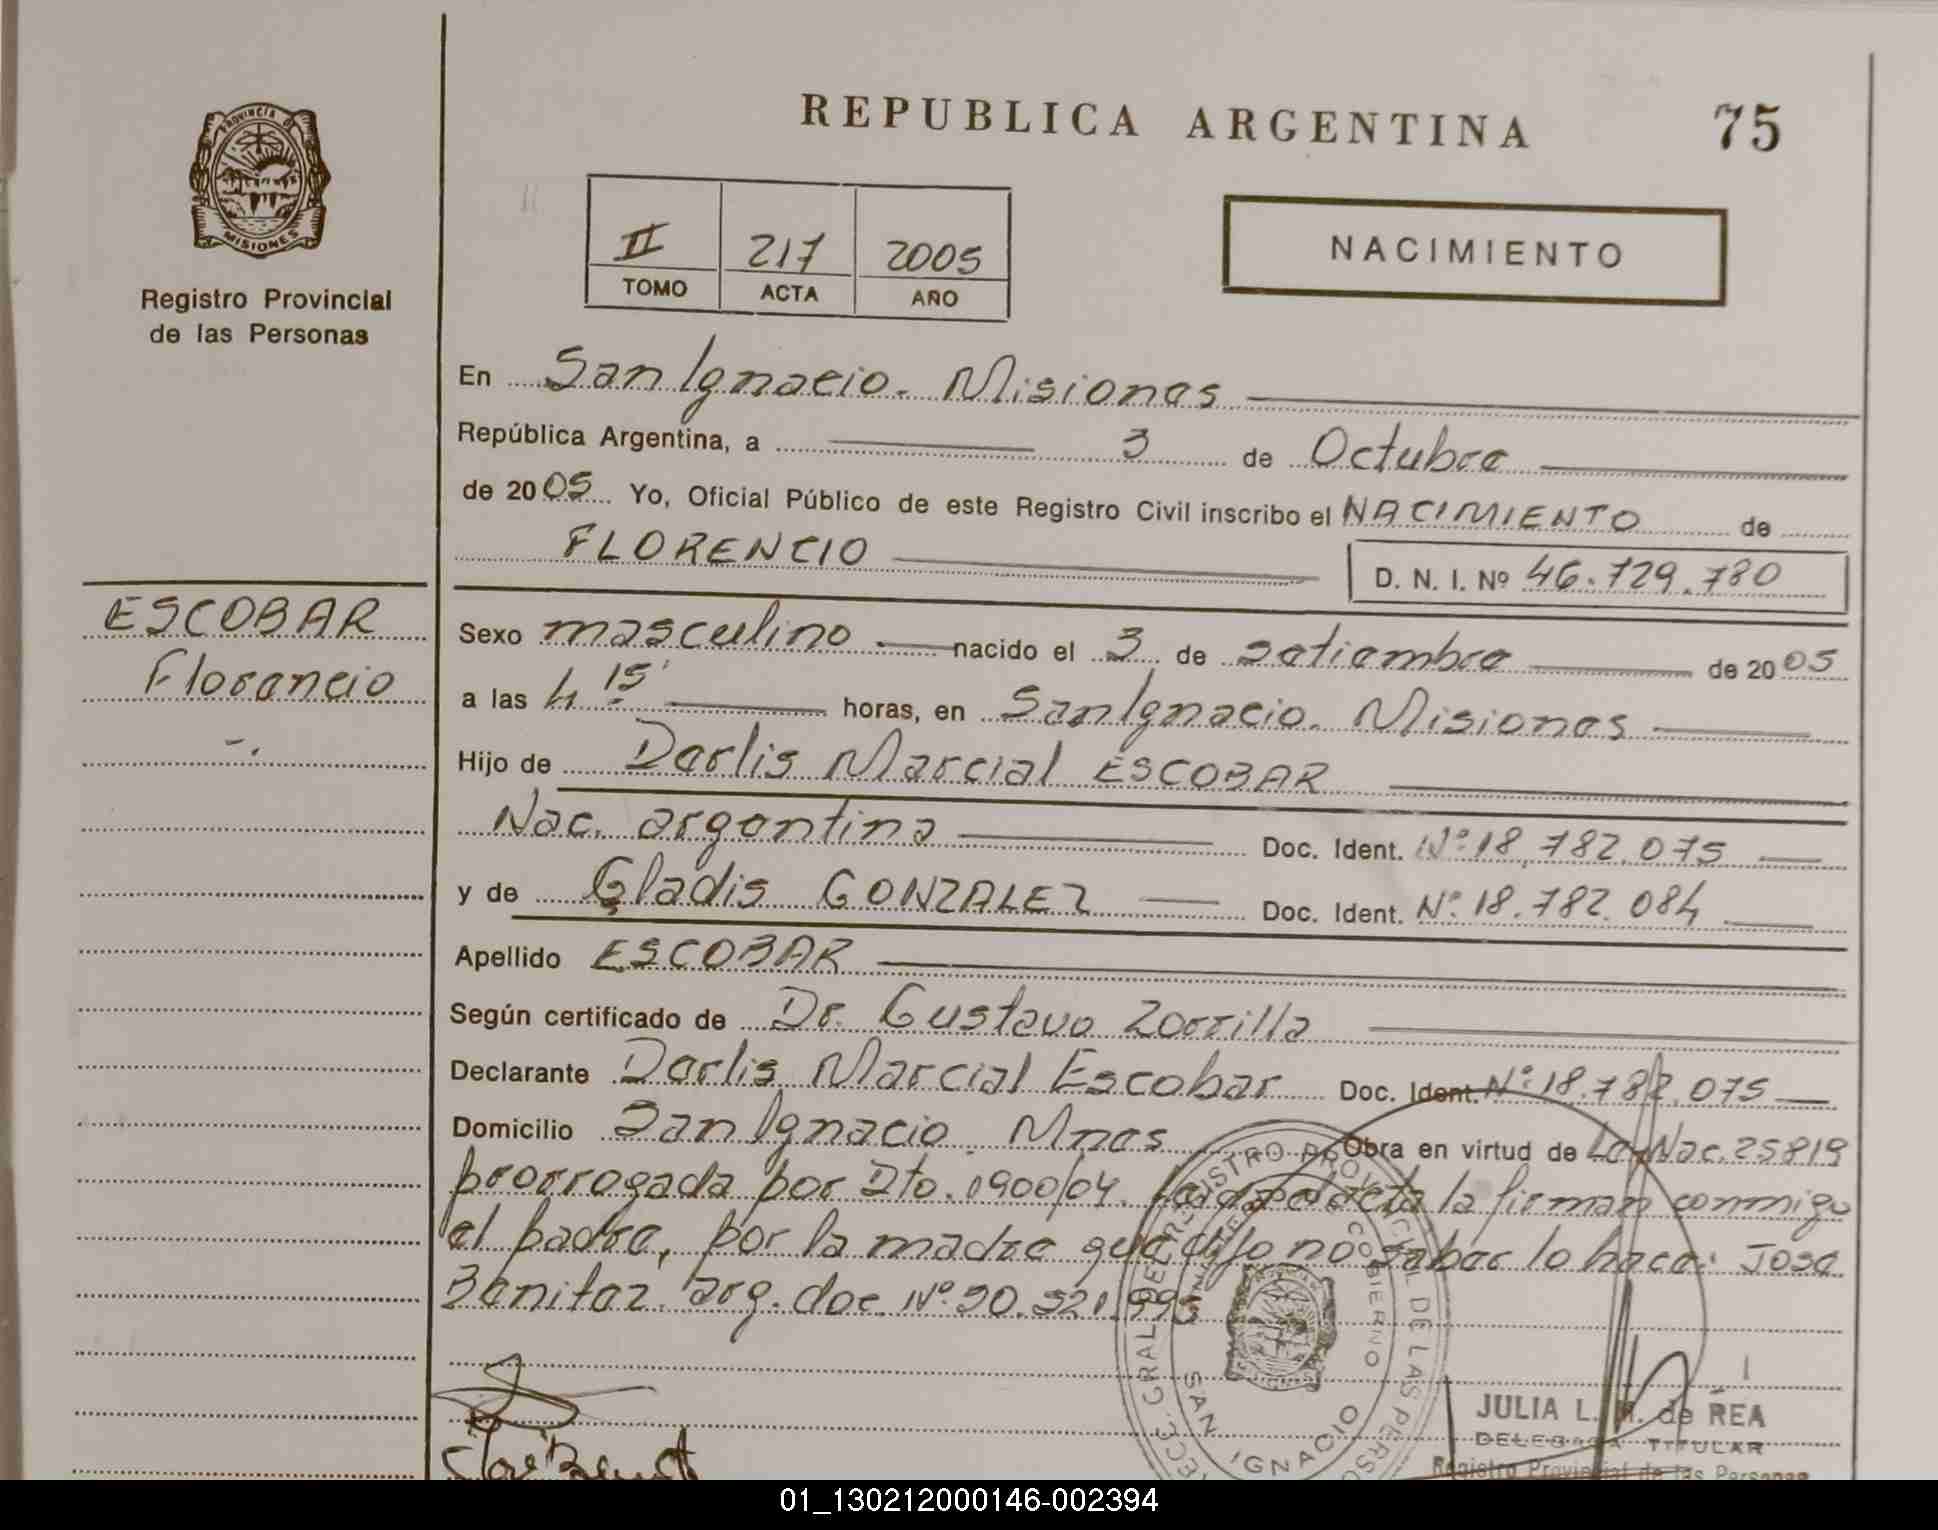 REPUBLICA ARGENTINA
75
PROVINCIA DE
MISIONES
Registro Provincial
de las Personas
II 217 2005
TOMO ACTA AÑO
NACIMIENTO
En San Ignacio. Misiones
República Argentina, a 3 de Octubre
de 2005 Yo, Oficial Público de este Registro Civil inscribo el NACIMIENTO de
FLORENCIO
D. N. I. Nº 46.729.780
ESCOBAR
Florencio
Sexo masculino nacido el 3 de setiembre de 2005
a las 4.15' horas, en San Ignacio. Misiones
Hijo de Darlis Marcial ESCOBAR
Nac. argentina Doc. Ident. Nº 18.782.075
y de Gladis GONZALEZ Doc. Ident. Nº 18.782.084
Apellido ESCOBAR
Según certificado de Dr. Gustavo Zorrilla
Declarante Darlis Marcial Escobar Doc. Ident. Nº 18.782.075
Domicilio San Ignacio Mnes Obra en virtud de Ley Nac. 25819
prorrogada por Dto. 1900/04. Leida el acta la firman conmigo
el padre, por la madre que dijo no saber lo hace: Jose
Benitez. arg. doc. Nº
SAN IGNACIO
JULIA L. M. de REA
DELEGADA TITULAR
Registro Provincial de las Personas
01_130212000146-002394